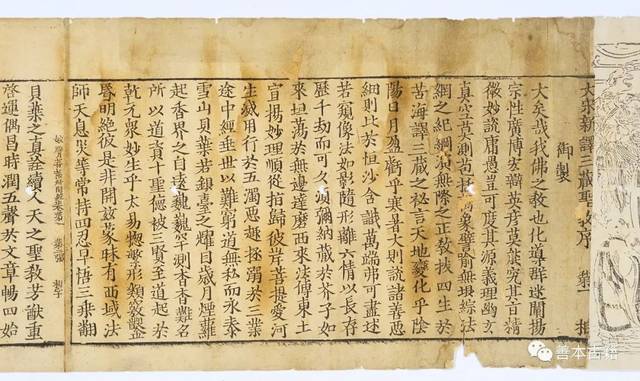 大宋新譯三藏聖教序
御製
大矣哉我佛之教也化導群迷闡揚
宗性廣博宏辯英彥莫能究其旨精
微妙說庸愚豈可度其源義理幽玄
真空莫測苞括萬象譬喻無垠綜法
網之紀綱演無際之正教拔四生於
苦海譯三藏之秘言天地變化乎陰
陽日月盈虧乎寒暑大則說諸善惡
細則比於恒沙含識萬端弗可盡述
若窺像法如影隨形離六情以長存
歷千劫而可久須彌納藏於芥子如
來坦蕩於無邊達磨西來法傳東土
宣揚妙理順從指歸彼岸菩提愛河
生滅用行於五濁惡趣拯溺於三業
途中經垂世以難窮道無私而永泰
雪山貝葉若銀臺之耀目歲月煙蘿
起香界之自遠巍巍罕測杳杳難名
所以道資十聖德被三賢至道起於
乾元衆妙生乎太易揔繁形類竅鑿
昏明絕彼是非開茲蒙昧有西域法
師天息災等常持四忍早悟三乘翻
貝葉之真詮續人天之聖教芳猷重
啓運偶昌時潤五聲於文章暢四始
善本古籍